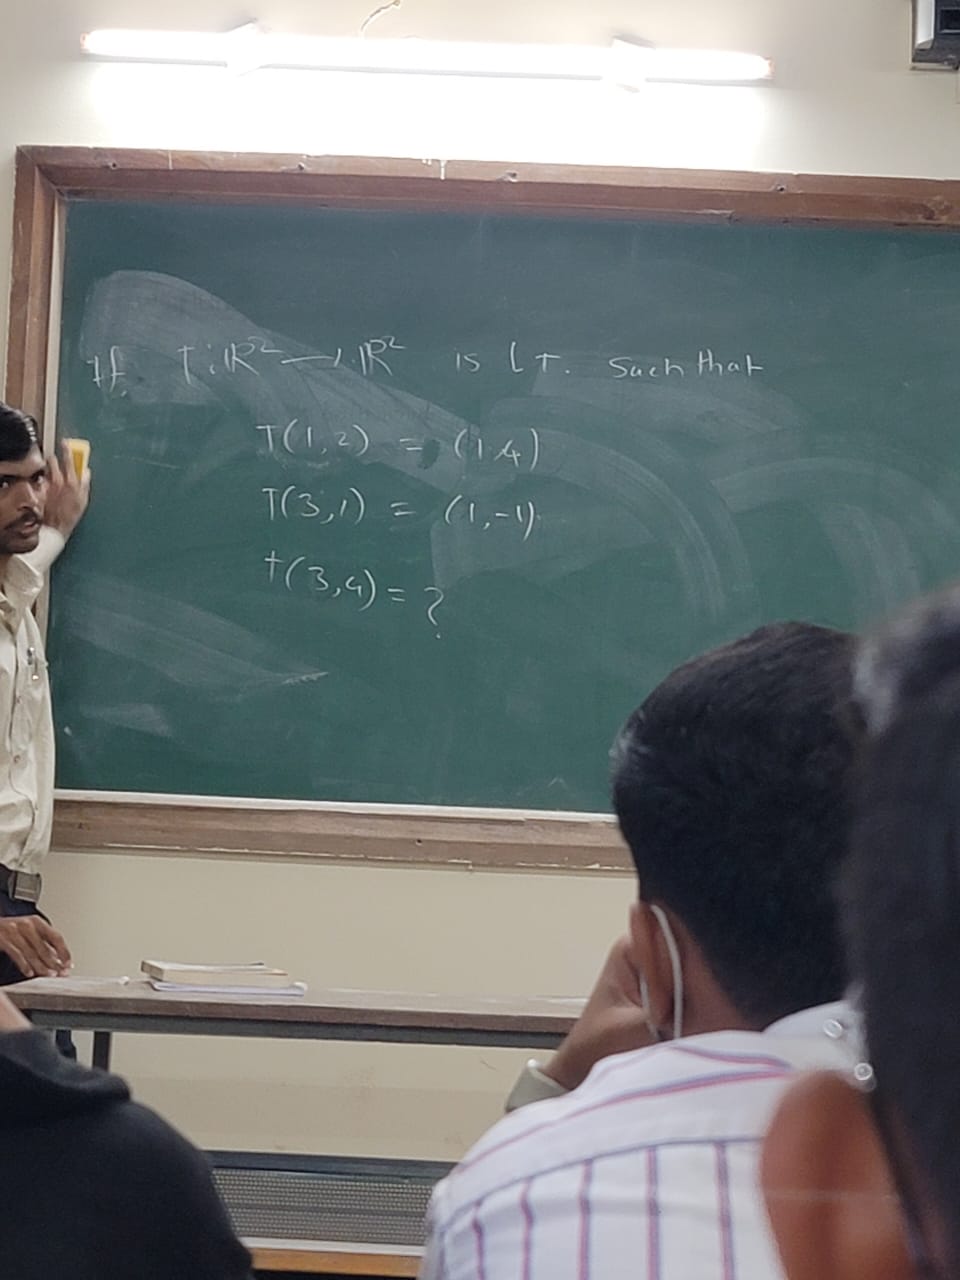 If T:ℝ² → ℝ² is LT. Such that
T(1,2) = (1,4)
T(3,1) = (1,-1)
T(3,4) = ?